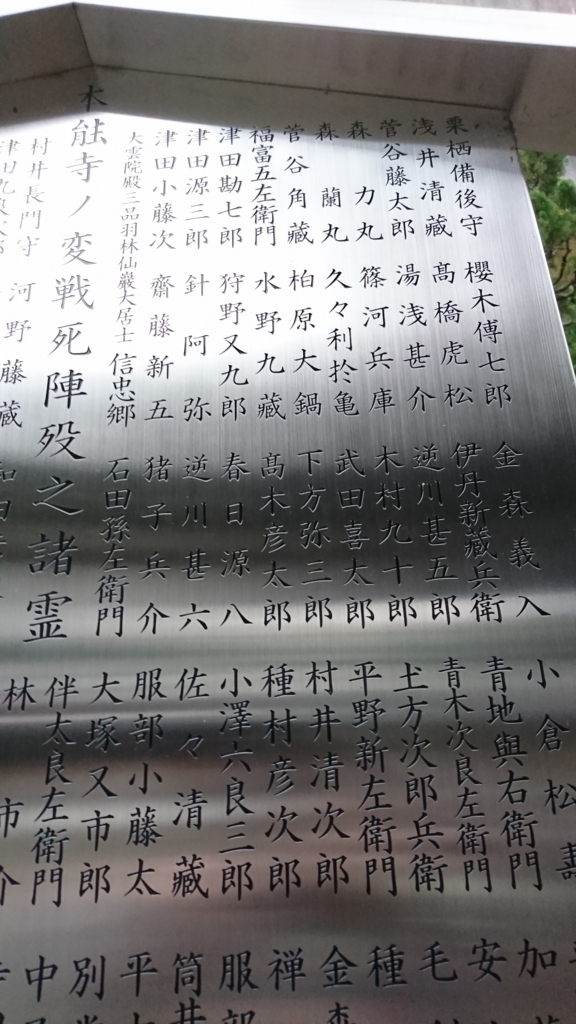 栗栖備後守 櫻木傅七郎 金森義入 小倉松壽
浅井清藏 髙橋虎松 伊丹新藏兵衛 青地與右衛門 加
菅谷藤太郎 湯浅甚介 逆川甚五郎 青木次良左衛門 安
森力丸 篠河兵庫 木村九十郎 土方次郎兵衛 毛
森蘭丸 久々利於亀 武田喜太郎 平野新左衛門 種
菅谷角藏 柏原大鍋 下方弥三郎 村井清次郎 金森
福富五左衛門 水野九藏 髙木彦太郎 種村彦次郎 禅
津田勘七郎 狩野又九郎 春日源八 小澤六良三郎 服部
津田源三郎 針阿弥 逆川甚六 佐々清藏 筒井
津田小藤次 齋藤新五 猪子兵介 服部小藤太 平
大雲院殿三品羽林仙巖大居士 信忠郷 石田孫左衛門 大塚又市郎 別
本能寺ノ変戦死陣歿之諸霊
伴太良左衛門 中
村井長門守 河野藤藏
林市介